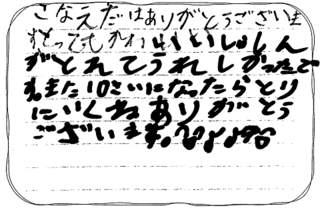 こなえだはありがとうございま
すとってもかわいいいしゃしん
がとれてうれしかったで
すまた10さいになったらとり
にいくねありがとう
ございます。